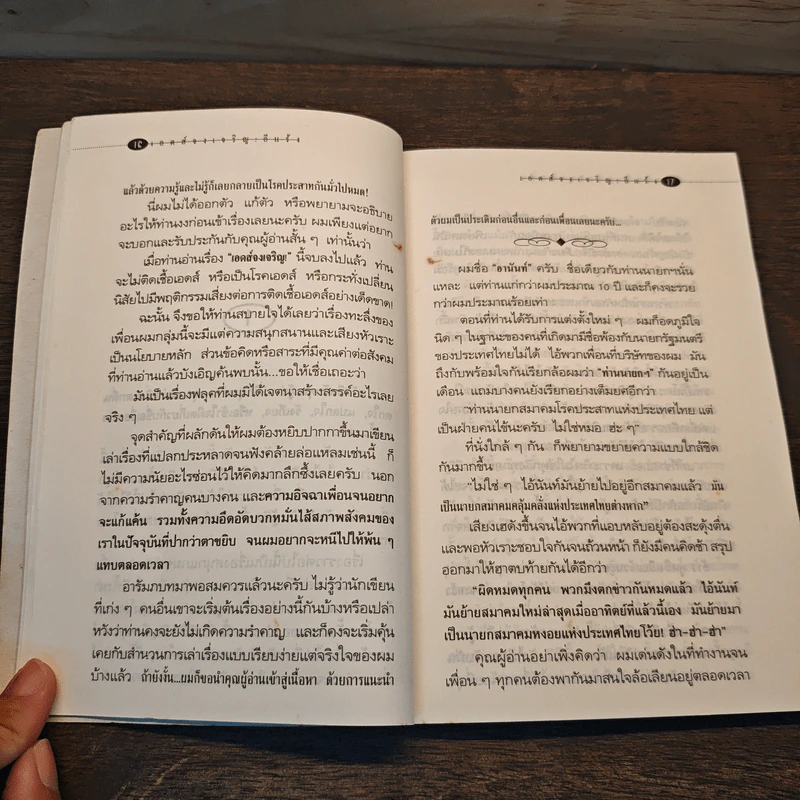 ๑๖ เอดส์จงเจริญ อีแร้ง
แล้วด้วยความรู้และไม่รู้ก็เลยกลายเป็นโรคประสาทกันมั่วไปหมด!
นี่ผมไม่ได้ออกตัว แก้ตัว หรือพยายามจะอธิบาย
อะไรให้ท่านงงก่อนเข้าเรื่องเลยนะครับ ผมเพียงแต่อยาก
จะบอกและรับประกันกับคุณผู้อ่านสั้น ๆ เท่านั้นว่า
เมื่อท่านอ่านเรื่อง "เอดส์จงเจริญ!" นี้จบลงไปแล้ว ท่าน
จะไม่ติดเชื้อเอดส์ หรือเป็นโรคเอดส์ หรือกระทั่งเปลี่ยน
นิสัยไปมีพฤติกรรมเสี่ยงต่อการติดเชื้อเอดส์อย่างเด็ดขาด!
ฉะนั้น จึงขอให้ท่านสบายใจได้เลยว่าเรื่องทะลึ่งของ
เพื่อนผมกลุ่มนี้จะมีแต่ความสนุกสนานและเสียงหัวเราะ
เป็นนโยบายหลัก ส่วนข้อคิดหรือสาระที่มีคุณค่าต่อสังคม
ที่ท่านอ่านแล้วบังเอิญค้นพบนั้น...ขอให้เชื่อเถอะว่า
มันเป็นเรื่องฟลุคที่ผมมิได้เจตนาสร้างสรรค์อะไรเลย
จริง ๆ
จุดสำคัญที่ผลักดันให้ผมต้องหยิบปากกาขึ้นมาเขียน
เล่าเรื่องที่แปลกประหลาดจนฟังคล้ายล่อแหลมเช่นนี้ ก็
ไม่มีความนัยอะไรซ่อนไว้ให้คิดมากลึกซึ้งเลยครับ นอก
จากความรำคาญคนบางคน และความอิจฉาเพื่อนจนอยาก
จะแก้แค้น รวมทั้งความอึดอัดบวกหมั่นไส้สภาพสังคมของ
เราในปัจจุบันที่ปากว่าตาขยิบ จนผมอยากจะหนีไปให้พ้น ๆ
แทบตลอดเวลา
อารัมภบทมาพอสมควรแล้วนะครับ ไม่รู้ว่านักเขียน
ที่เก่ง ๆ คนอื่นเขาจะเริ่มต้นเรื่องอย่างนี้กันบ้างหรือเปล่า
หวังว่าท่านคงจะยังไม่เกิดความรำคาญ และก็คงจะเริ่มคุ้น
เคยกับสำนวนการเล่าเรื่องแบบเรียบง่ายแต่จริงใจของผม
บ้างแล้ว ถ้ายังงั้น...ผมก็ขอนำคุณผู้อ่านเข้าสู่เนื้อหา ด้วยการแนะนำ
เอดส์จงเจริญ อีแร้ง ๑๗
ตัวผมเป็นประเดิมก่อนอื่นและก่อนเพื่อนเลยนะครับ...
ผมชื่อ "อานันท์" ครับ ชื่อเดียวกับท่านนายกฯนั่น
แหละ แต่ท่านแก่กว่าผมประมาณ 10 ปี และก็คงจะรวย
กว่าผมประมาณร้อยเท่า
ตอนที่ท่านได้รับการแต่งตั้งใหม่ ๆ ผมก็อดภูมิใจ
นิด ๆ ในฐานะของคนที่เกิดมามีชื่อพ้องกับนายกรัฐมนตรี
ของประเทศไทยไม่ได้ ไอ้พวกเพื่อนที่บริษัทของผม มัน
ถึงกับพร้อมใจกันเรียกล้อผมว่า "ท่านนายกฯ" กันอยู่เป็น
เดือน แถมบางคนยังเรียกอย่างเต็มยศอีกว่า
"ท่านนายกสมาคมโรคประสาทแห่งประเทศไทย แต่
เป็นฝ่ายคนไข้นะครับ ไม่ใช่หมอ ฮ่ะ ๆ"
ที่นั่งใกล้ ๆ กัน ก็พยายามขยายความแบบใกล้ชิด
กันมากขึ้น
"ไม่ใช่ ๆ ไอ้นันท์มันย้ายไปอยู่อีกสมาคมแล้ว มัน
เป็นนายกสมาคมคลุ้มคลั่งแห่งประเทศไทยต่างหาก"
เสียงเฮดังขึ้นจนไอ้พวกที่แอบหลับอยู่ต้องสะดุ้งตื่น
และพอหัวเราะชอบใจกันจนถ้วนหน้า ก็ยังมีคนคิดซ้ำ สรุป
ออกมาให้ฮาตบท้ายกันได้อีกว่า
"ผิดหมดทุกคน พวกมึงตกข่าวกันหมดแล้ว ไอ้นันท์
มันย้ายสมาคมใหม่ล่าสุดเมื่ออาทิตย์ที่แล้วนี้เอง มันย้ายมา
เป็นนายกสมาคมหงอยแห่งประเทศไทยโว้ย! ฮ่า-ฮ่า-ฮ่า"
คุณผู้อ่านอย่าเพิ่งคิดว่า ผมเด่นดังในที่ทำงานจน
เพื่อน ๆ ทุกคนต้องพากันมาสนใจล้อเลียนอยู่ตลอดเวลา